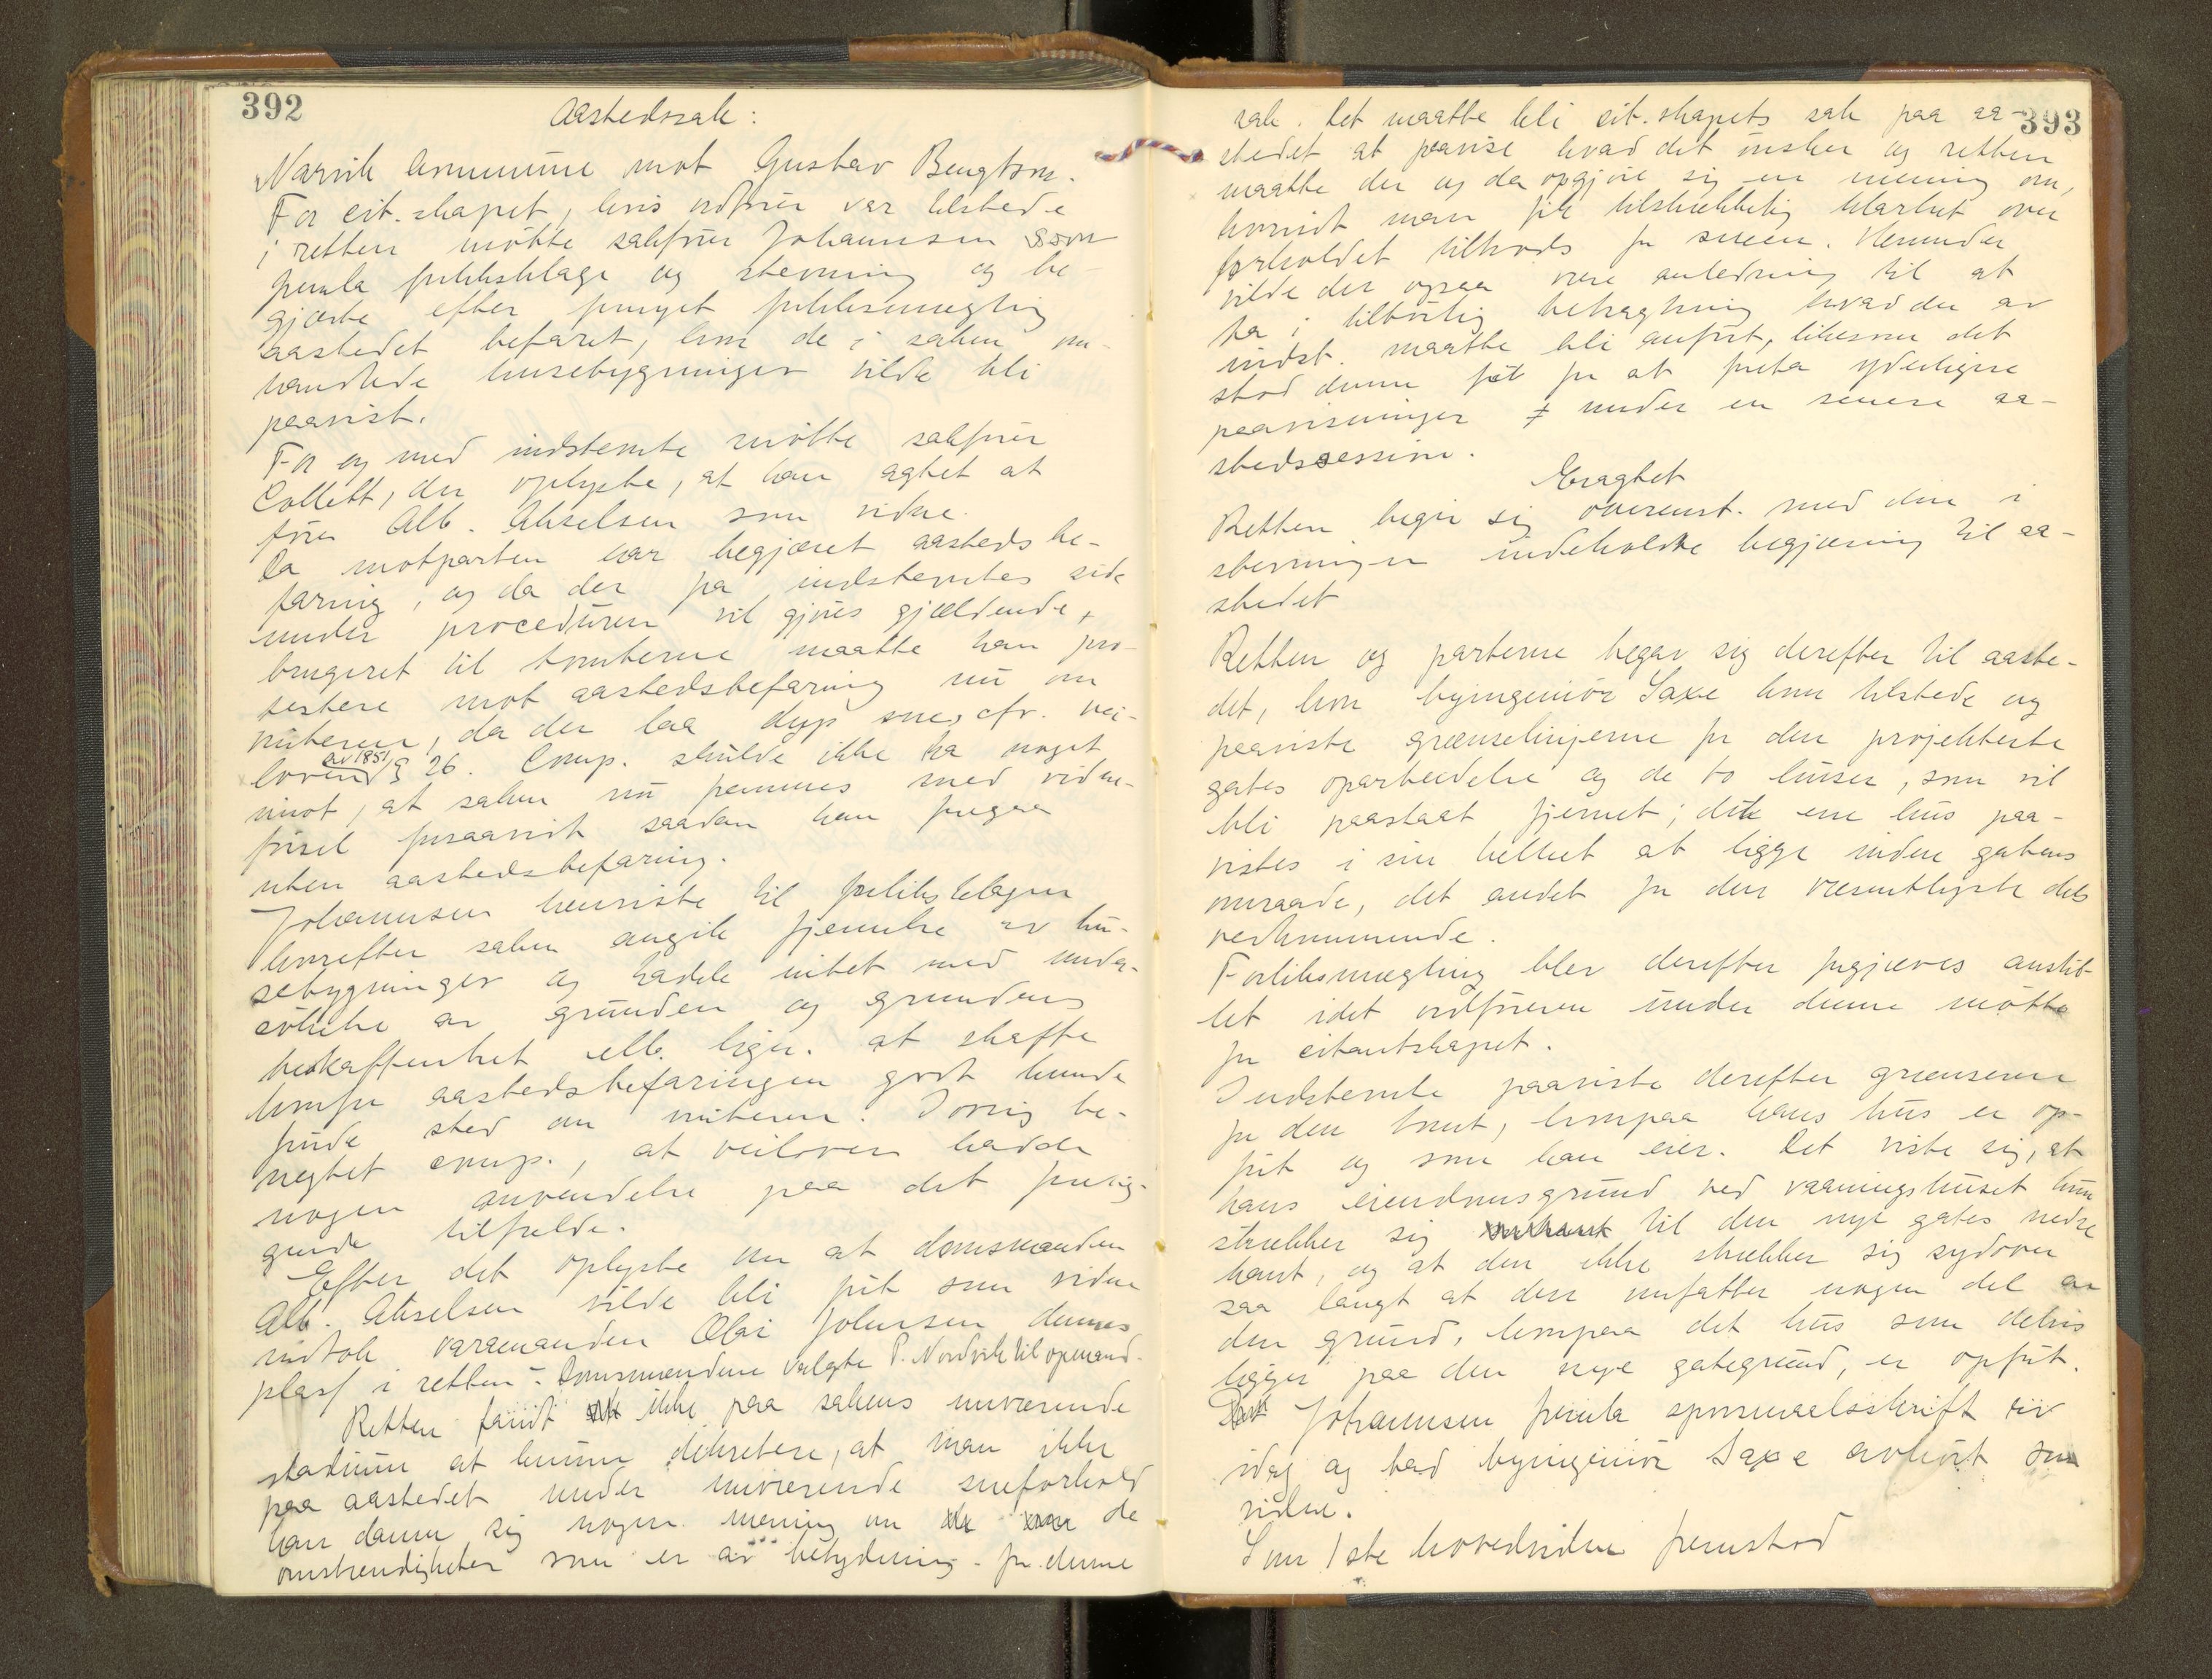 392
Aastedssak:
Narvik kommune mot Gustav Bengtson.
For cit.skapet, hvis ordfører var tilstede
i retten møtte sakfører Johannesen som
fremla forliksklage og stevning og be-
gjærte efter forsøgt forliksmegling
aastedet befaret, hvor de i saken om-
handlede husebygninger vilde bli
paavist.
For og med indstevnte møtte sakfører
Collett, der oplyste, at han agtet at
føre Alb. Akselsen som vidne.
Da motparten har begjæret aastedsbe-
faring, og da der fra indstevntes side
under proceduren vil gjøres gjældende,
brugsret til tomterne maatte han pro-
testere mot aastedsbefaring nu om
vinteren, da der laa dyp sne, cfr. vei-
loven av 1851 § 26. Comp. skulde ikke ha noget
imot, at saken nu fremmes med vidne-
førsel forsaavidt saadan kan foregaa
uten aastedsbefaring.
Johannesen henviste til forliksklagen
hvorefter saken angik fjernelse av hu-
sebygninger og hadde intet med under-
søkelse av grunden og grundens
beskaffenhet ell. lign. at skaffe
hvorfor aastedsbefaringen godt kunde
finde sted om vinteren. Iøvrig be-
negtet comp., at veiloven hadde
nogen anvendelse paa det forelig-
gende tilfælde.
Efter det oplyste om at domsmanden
Alb. Akselsen vilde bli ført som vidne
indtok varamanden Olai Johnsen dennes
plass i retten. Domsmændene valgte P. Nordvik til opmand.
Retten fandt ikke paa sakens nuværende
stadium at kunne dekretere, at man ikke
paa aastedet under nuværende sneforhold
kan danne sig nogen mening om de
omstændigheter som er av betydning for denne
393
sak. Det maatte bli cit.skapets sak paa aa-
stedet at paavise hvad det ønsker og retten
maatte der og da opgjøre sig en mening om,
hvorvidt man fik tilstrækkelig klarhet over
forholdet tiltrods for sneen. Herunder
vilde der ogsaa være anledning til at
ta i tilbørlig betragtning hvad der av
indst. maatte bli anført, likesom det
stod denne frit for at foreta yderligere
paavisninger under en senere aa-
stedssession.
Eragtet
Retten begir sig overenst. med den i
stevningen indeholdte begjæring til aa-
stedet
Retten og parterne begav sig derefter til aaste-
det, hvor byingeniør Saxe kom tilstede og
paaviste grænselinjerne for den projekterte
gates oparbeidelse og de to huser, som vil
bli paastaat fjernet; det ene hus paa-
vistes i sin helhet at ligge inden gatens
omraade, det andet for den væsentligste dels
vedkommende.
Forliksmægling blev derefter forgjæves anstil-
let idet ordføreren under denne møtte
for citantskapet.
Indstevnte paaviste derefter grænserne
for den tomt, hvorpaa hans hus er op-
ført og som han eier. Det viste sig, at
hans eiendomsgrund ved vaaningshuset kun
strekker sig til den nye gates nedre
kant, og at den ikke strekker sig sydover
saa langt at den omfatter nogen del av
den grund, hvorpaa det hus som delvis
ligger paa den nye gategrund, er opført.
Johannesen fremla spørsmaalsskrift av
idag og bad byingeniør Saxe avhørt som
vidne.
Som 1ste hovedvidne fremstod